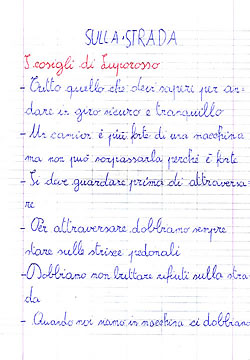 SULLA STRADA
I cosigli di Luporosso
- Tutto quello che devi sapere per an=
dare in giro sicuro e tranquillo
- Un camion è più forte di una macchina
ma non può sorpassarla perché è forte
- Si deve guardare prima di attraversa=
re
- Per attraversare dobbiamo sempre
stare sulle strisce pedonali
- Dobbiamo non buttare rifiuti sulla stra=
da
- Quando noi siamo in macchina ci dobbiamo